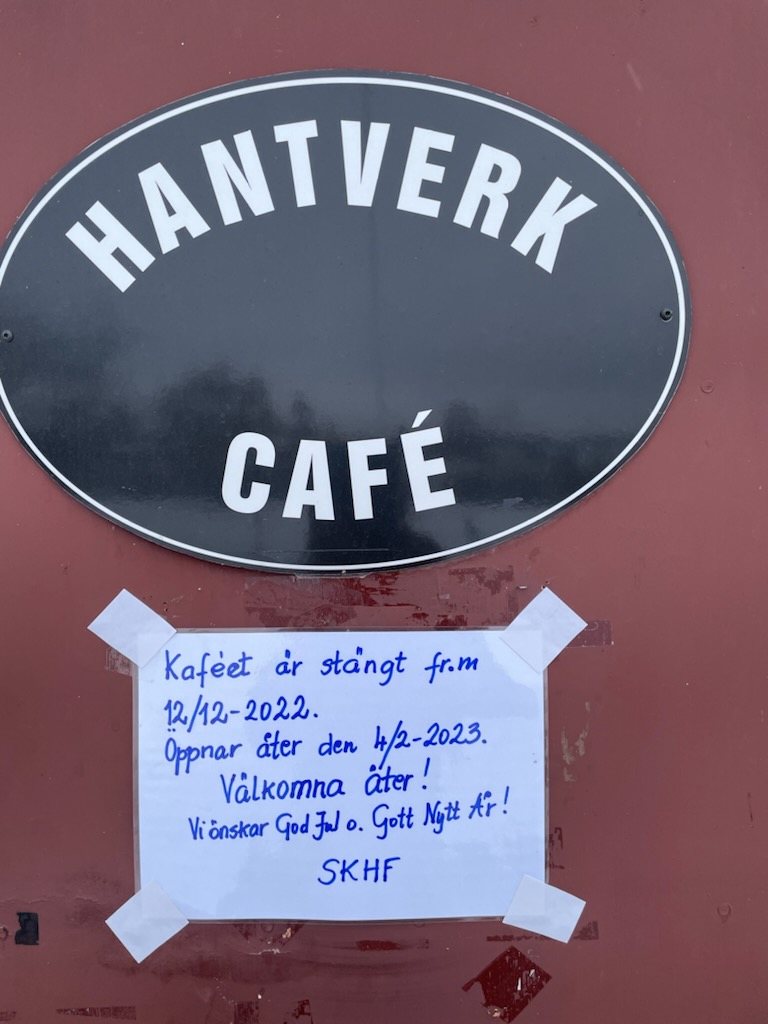 HANTVERK
CAFÉ
Kaféet är stängt fr.m
12/12-2022.
Öppnar åter den 4/2-2023.
Välkomna åter!
Vi önskar God Jul o. Gott Nytt År!
SKHF